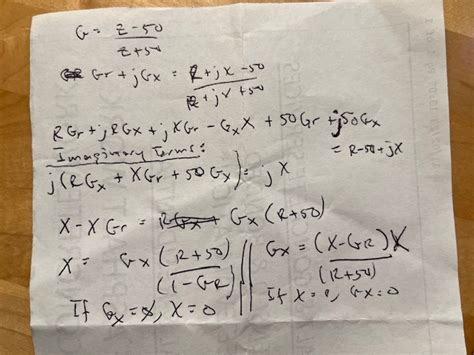 G = Z-50 / Z+50
Gr + jGx = R+jX-50 / R+jX+50
RGr + jRGx + jXGr - GxX + 50Gr + j50Gx
= R-50+jX
Imaginary Terms:
j(RGx + XGr + 50Gx) = jX
X - XGr = Gx(R+50)
X = Gx (R+50) / (1-GR)
Gx = (X-GR)X / (R+50)
If Gx = 0, X = 0
If X = 0, Gx = 0